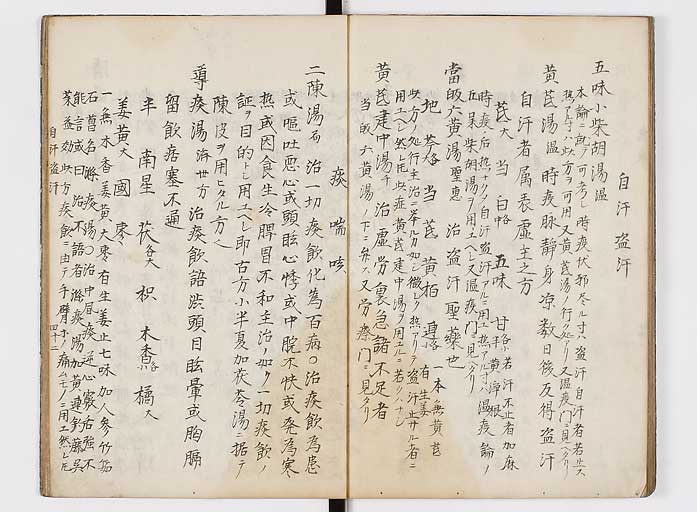 自汗盗汗
五味小柴胡湯 温
本論ニ就テ可考レ時疫伏邪尽ルサ盗汗自汗者若止ス
此方ヲ可用又黄芪湯ノ行処アリ又温疫門ニ見ヘタリ
黄芪湯 温 時疫脉静身凉数日後反得盗汗
自汗者属表虚主之方
芪大 当 白略 五味 甘 若汗不止者加麻
黄浄根
時疫后熱ナクメ自汗盗汗アルニ用エ熱アルサハ温疫論ノ
柴胡湯ヲ用エヘレ又温疫門ニ見ヘタリ
當帰六黄湯 聖恵 治盗汗聖藥也
地 芩 当 芪 黄栢 連 一本無黄芪
有生姜
此方ノ処行主治ニ挙ル如レ
用エヘレ然レ𪜈此症黄芪建中湯ヲ用エルニ若クハナレ
黄芪建中湯 千 治虚労裏急諸不足者
当帰六黄湯ノ下ニ参ス又労療門ニ見ヘタリ
痰喘咳
二陳湯 局 治一切痰飲化為百病〇治痰飲為患
或嘔吐悪心或頭眩心悸或中脘不快或発為寒
熱或因食生冷脾胃不和主治ノ如ク一切痰飲ノ
証ヲ目的トレ用エヘレ即古方小半夏加茯苓湯ニ据テ
陳皮ヲ用ヒタル方也
導痰湯 済世方 治痰飲語渋頭目眩暈或胸膈
留飲痞塞不通
半 南星 茯各大 枳 木香 橘大
姜黄大 國 棗
一無木香姜黄大棗有生姜止七味加人参竹筎
石菖名滌痰湯〇治中昏痰逆心竅舌強不
能言或曰治不語者滌痰湯加黄連釣藤呉
茱益効此方痰飲ニ由テ手臂ノ痛ムモノニ用エ然レ𪜈
自汗盗汗 四十二